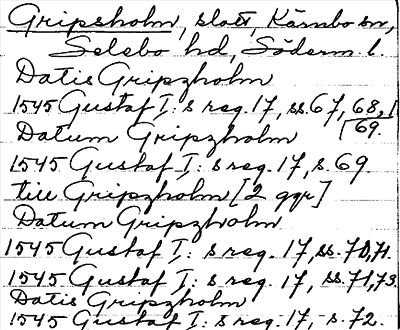 Gripsholm, slott, Kärnbo sn,
Selebo hd, Söderm. l.
Datis Gripzholm
1545 Gustaf I:s reg. 17, ss. 67, 68, 1
69.
Datum Gripzholm
1545 Gustaf I:s reg. 17, s. 69.
till Gripzholm [2 ggr]
Datum Gripzholm
1545 Gustaf I:s reg. 17, ss. 70, 71.
1545 Gustaf I:s reg. 17, ss. 71, 73.
Datis Gripzholm
1545 Gustaf I:s reg. 17, s. 72.